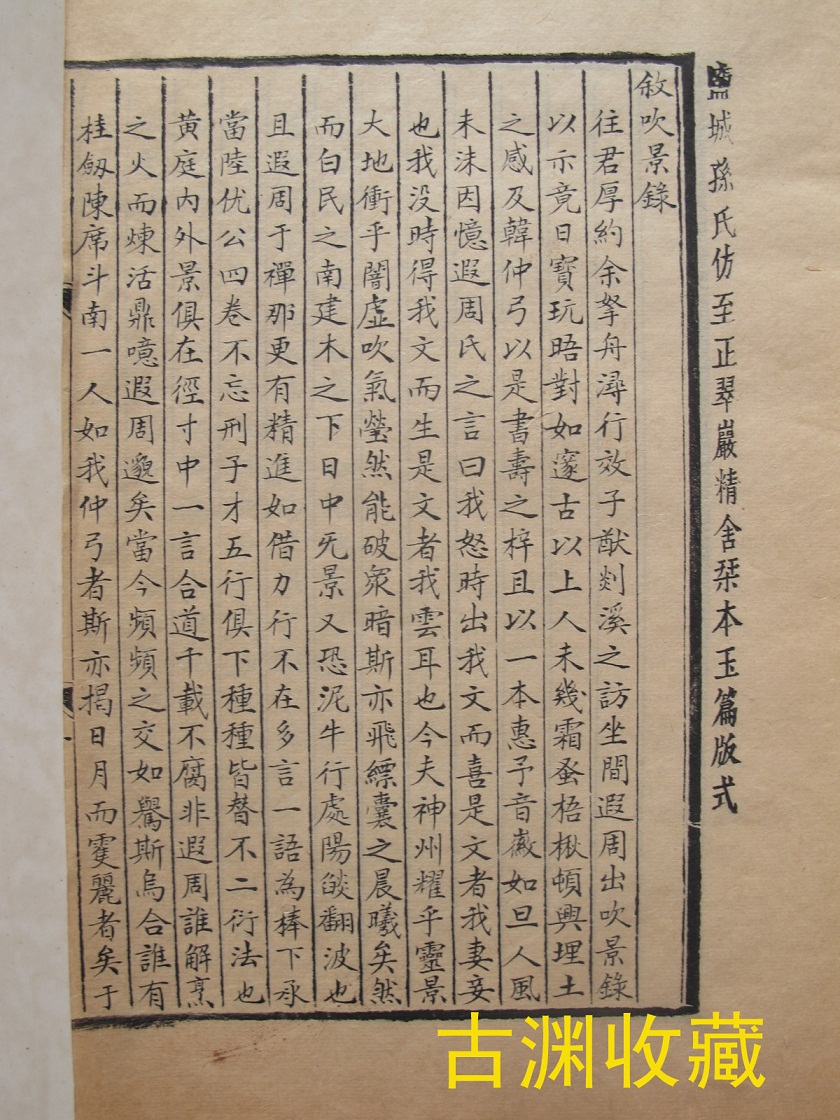 盬城孫氏仿至正翠巖精舍栞本玉篇版式
敘吹景錄
往君厚約余拏舟潯行效子猷剡溪之訪坐間遐周出吹景錄
以示竟日寶玩晤對如邃古以上人未幾霜蚤梧楸頓興埋土
之感及韓仲弓以是書壽之梓且以一本惠予音徽如旦人風
未沬因憶遐周氏之言曰我怒時出我文而喜是文者我妻妾
也我没時得我文而生是文者我雲耳也今夫神州耀乎靈景
大地衝乎闇虛吹氣瑩然能破眾暗斯亦飛縹囊之晨曦矣然
而白民之南建木之下日中旡景又恐泥牛行處陽燄翻波也
且遐周于禪那更有精進如借力行不在多言一語為棒下承
當陸优公四卷不忘刑子才五行俱下種種皆瞽不二衍法也
黃庭內外景俱在徑寸中一言合道千載不腐非遐周誰解烹
之火而煉活鼎噫遐周邈矣當今頻頻之交如鸒斯烏合誰有
桂劒陳席斗南一人如我仲弓者斯亦揭日月而霆麗者矣于
古渊收藏